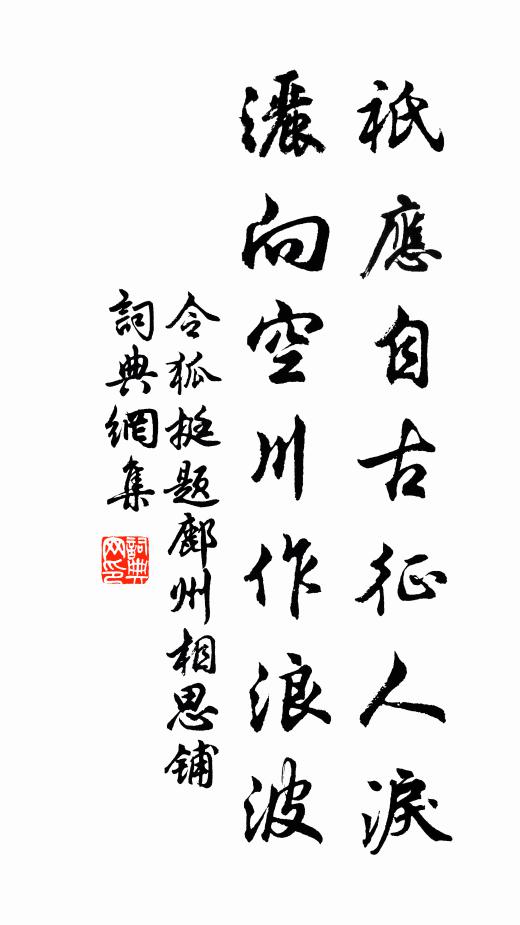 祇應自古征人淚
灑向空川作浪波
令狐挺题鄜州相思铺
詞典網集
詞典网印